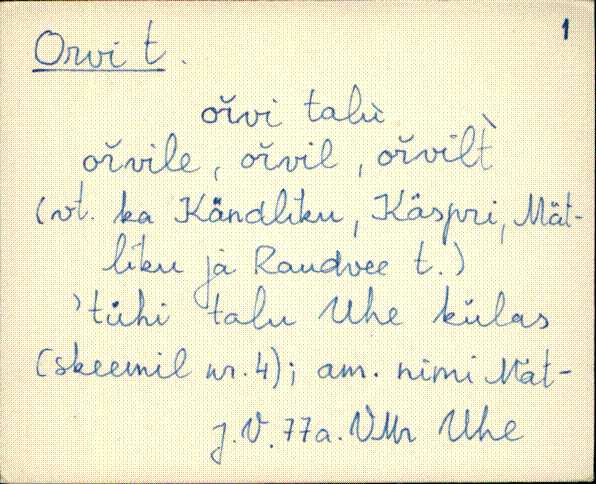 1
Orvi t.
oŕvi talù
oŕvile, oŕvil, oŕvil̀t
(vt. ka Kändliku, Käspri, Mät-
liku ja Raudvee t.)
'tühi talu Uhe külas
(skeemil nr. 4); am. nimi Mät-
J.V. 77a. VMr Uhe